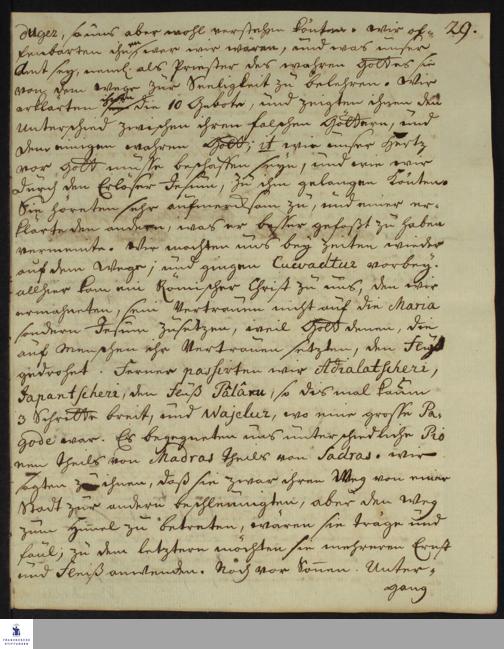 29.
duger, so uns aber wohl verstehen könten. Wir of-
fenbarten ihnen wer wir waren, und was unser
Amt sey, neml. als Priester des wahren Gottes sie
von dem Wege zur Seeligkeit zu belehren. Wir
erklärten ihnen die 10 Gebote, und zeigten ihnen den
Unterschied zwischen ihren falschen Göttern, und
dem einigen wahren Gott; it wie unser Hertz
vor Gott müsse beschaffen seyn, und wie wir
durch den Erlöser Jesum, zu ihm gelangen könten.
Sie höreten sehr aufmercksam zu, und einer er-
klärte den andern, was er besser gefaßt zu haben
vermeinte. Wir machten uns bey Zeiten wieder
auf dem Wege, und gingen Cuewadtur vorbey.
allhier kam ein Römischer Christ zu uns, den wir
ermahneten, sein Vertrauen nicht auf die Maria
sondern Jesum zu setzen, weil Gott denen, die
auf Menschen ihr Vertrauen setzten, den Fluch
gedrohet. Ferner passirten wir Adialatscheri,
Japantscheri, den Fluß Pâlâru, so dismal kaum
3 Schritte breit, und Wajelur, wo eine grosse Pa-
gode war. Es begegneten uns unterschiedliche
theils von Madras theils von Sadras. Wir
sagten zu ihnen, daß sie zwar ihren Weg von einer
Stadt zur andern beschleunigten, aber den Weg
zum Himmel zu betreten, wären sie träge und
faul; zu dem letztern möchten sie mehreren Ernst
und Fleiß anwenden. Noch vor Sonnen Unter-
gang
FRANCKESCHE
STIFTUNGEN